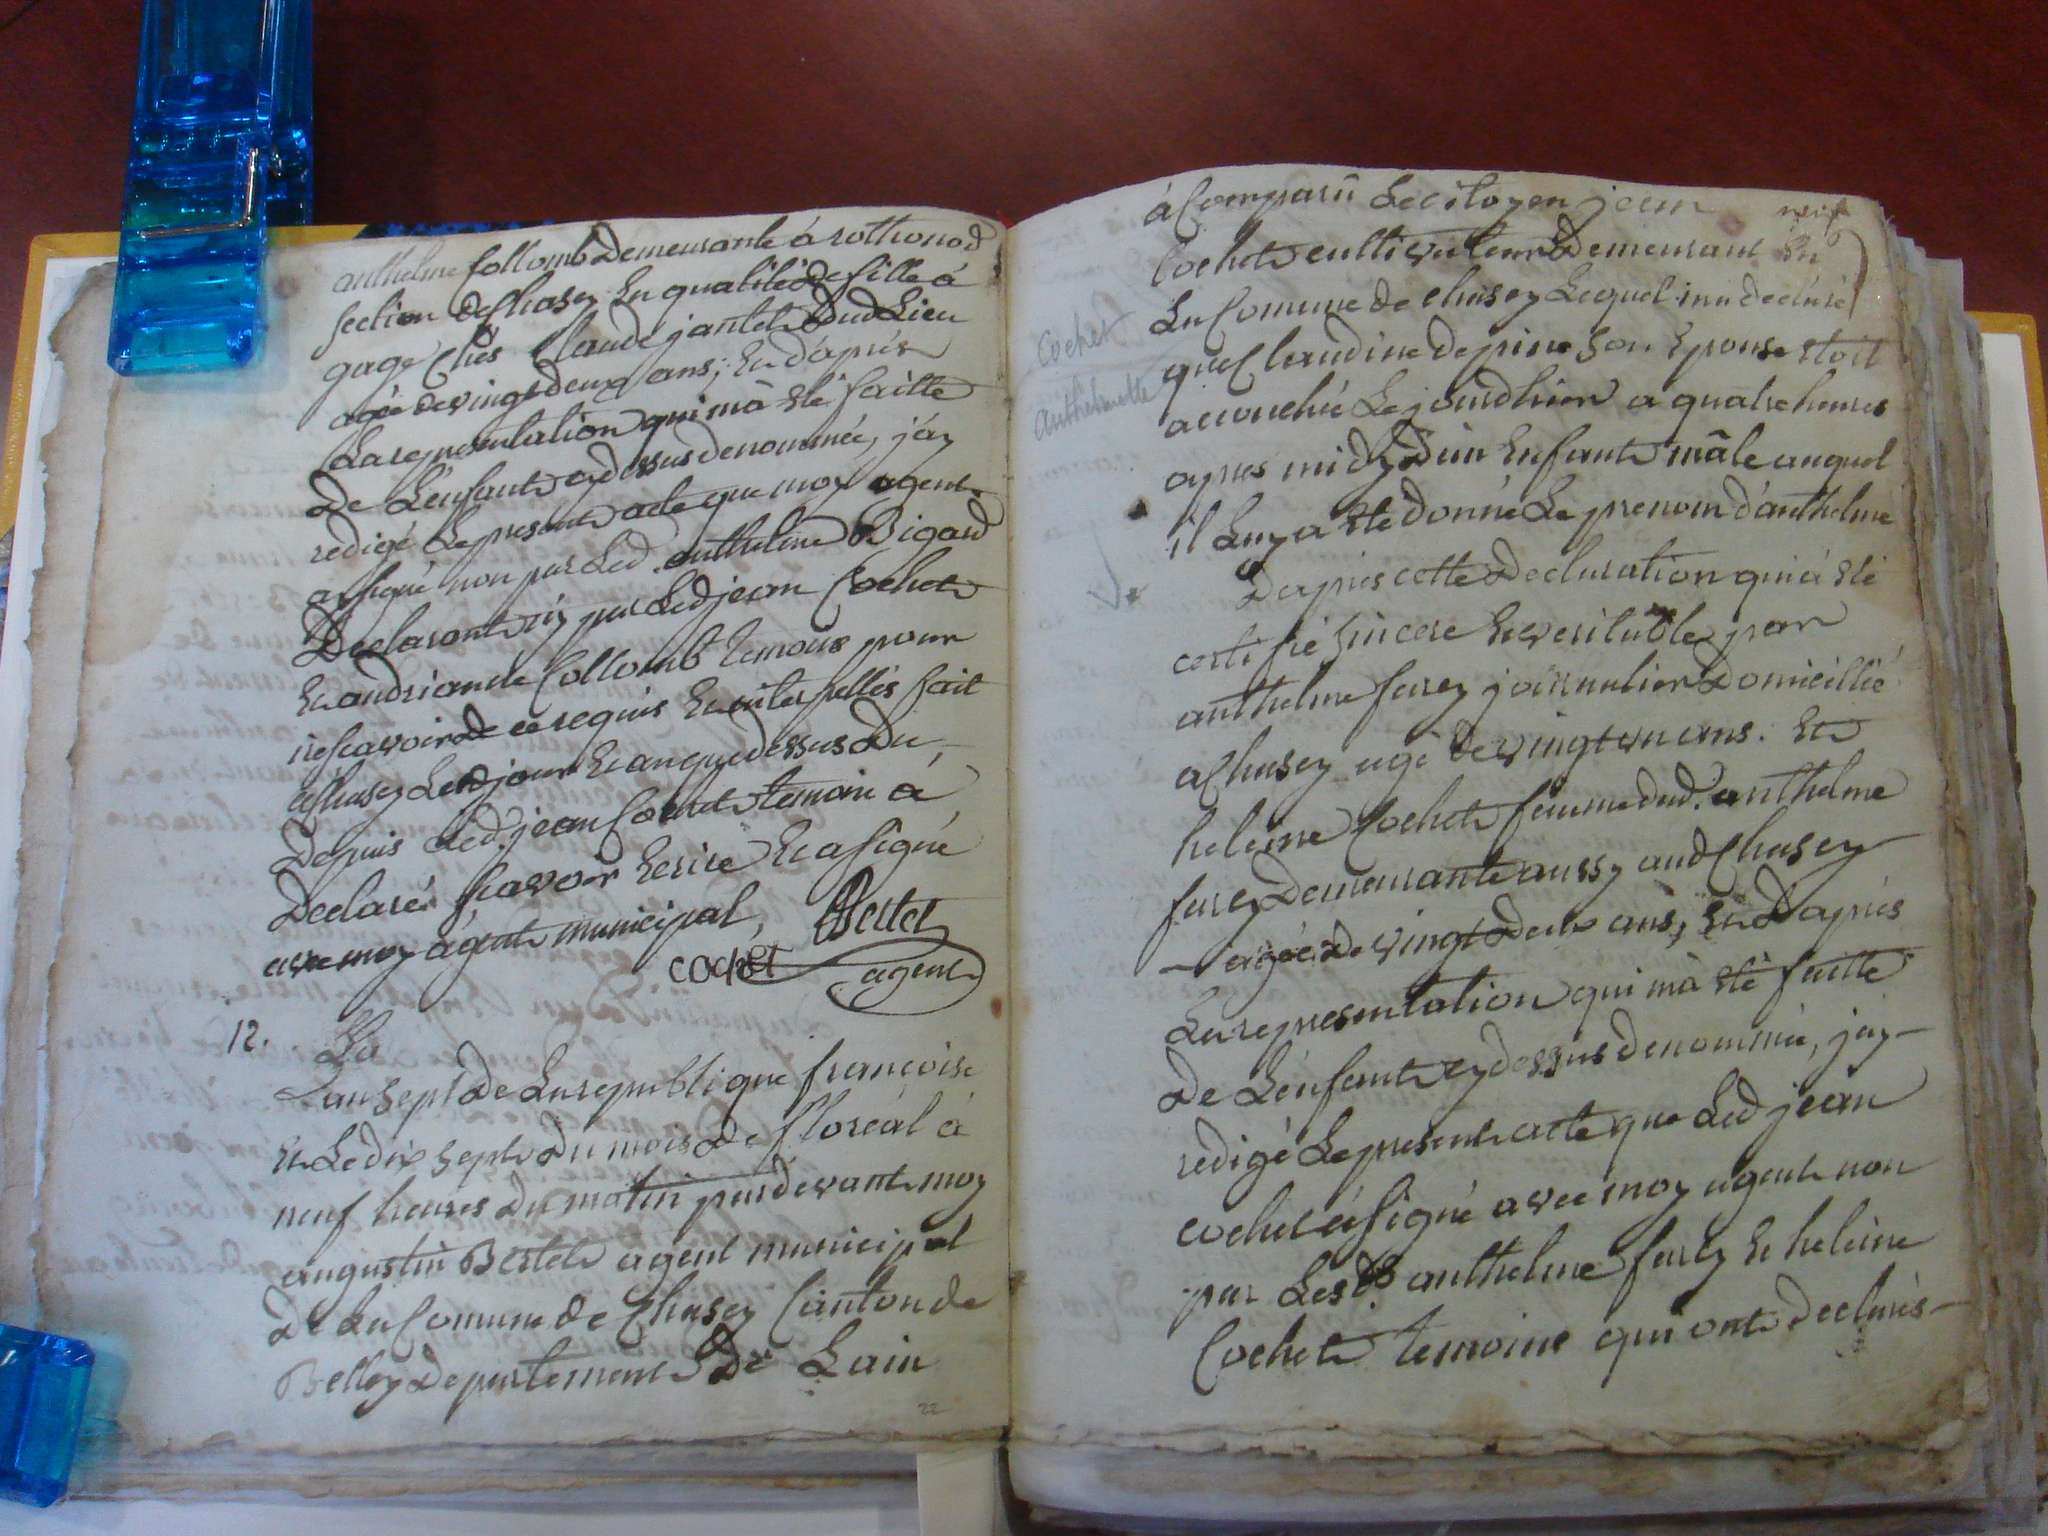 anthelme Collomb demeurante á rothonod
section de Chasey En qualité de fille á
gage Chés Claude jantet dud Lieu
agée de vingt deux ans; En d'aprés
La representation qui m'à eté faitte
De L'enfant cy dessus denommée, j'ay
redigé Le present acte que moy agent
a signé non par Led. anthelme Bigaud
Declarant ny par Led jean Cochet
Et andriande Collomb temoins pour
ne scavoir de ce requis Et interpellés fait
a Chasey Led jour Et an que dessus Du
Depuis Led. jean Cochet temoin á
Declaré scavoir Ecrire Et a signé
avec moy agent municipal, Bertet
cochet agent
12. La
L'an Sept de La republique françoise
Et Le dix Sept du mois de floréal á
neuf heures du matin pardevant moy
augustin Bertet agent municipal
De La Comune de Chasey Canton de
Belley Departement De Lain
22
á Comparû Le citoyen jean
Cochet cultivateur demeurant En
neuf
La Comune de chasey Lequel m'a declaré
cochet
que Claudine depine Son Epouse Etoit
anthelmette
accouchée Le jourdhier a quatre heures
apres midy D'un Enfant mâle auquel
il Luy a Eté donné Le prenom d'anthelme
Daprés cette Declaration qui á Eté
certifié Sincere Et veritable par
anthelme furey journalier Domicillié
a Chasey agé de vingt un ans. Et
heleine Cochet femme dud. anthelme
furey demeurante aussy aud Chasey
agée de vingt deux ans, Et D'aprés
La representation qui m'à eté faitte
De L'enfant cy dessus denommée, j'ay
redigé Le present acte que Led jean
cochet á signé avec moy agent non
par Lesds anthelme furey Et heleine
Cochet temoins qui ont Declarés